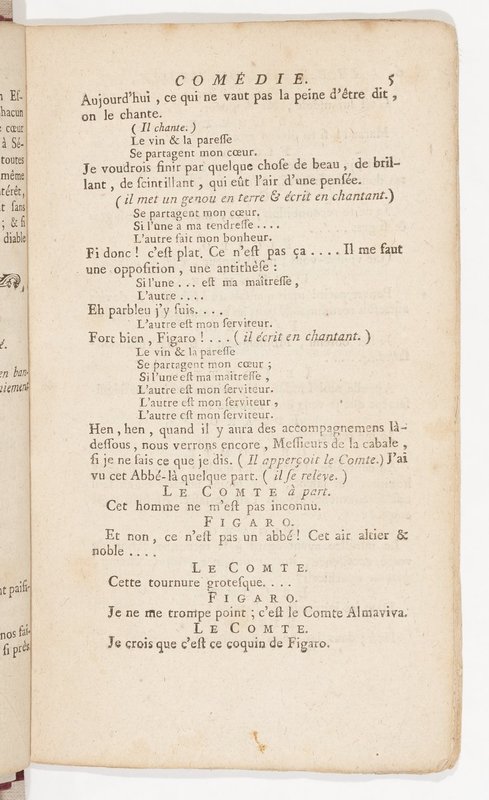 n Ef-
hacun
e cœur
à Sé-
toutes
même
ntérêt,
t fans
; & fi
diable
é.
en ban-
aiement
nt paifi-
nos faf-
fi près
COMÉDIE. 5
Aujourd'hui, ce qui ne vaut pas la peine d'être dit,
on le chante.
( Il chante. )
Le vin & la pareſſe
Se partagent mon cœur.
Je voudrois finir par quelque choſe de beau, de bril-
lant, de ſcintillant, qui eût l'air d'une penſée.
( il met un genou en terre & écrit en chantant.)
Se partagent mon cœur.
Si l'une a ma tendreſſe ....
L'autre fait mon bonheur.
Fi donc ! c'eſt plat. Ce n'eſt pas ça ..... Il me faut
une oppoſition, une antithèſe :
Si l'une ... eſt ma maîtreſſe,
L'autre ....
Eh parbleu j'y ſuis....
L'autre eſt mon ſerviteur.
Fort bien, Figaro ! ... ( il écrit en chantant. )
Le vin & la pareſſe
Se partagent mon cœur ;
Si l'une eſt ma maîtreſſe,
L'autre eſt mon ſerviteur.
L'autre eſt mon ſerviteur,
L'autre eſt mon ſerviteur.
Hen, hen, quand il y aura des accompagnemens là-
deſſous, nous verrons encore, Meſſieurs de la cabale,
ſi je ne ſais ce que je dis. ( Il apperçoit le Comte.) J'ai
vu cet Abbé-là quelque part. ( il ſe releve. )
LE COMTE à part.
Cet homme ne m'eſt pas inconnu.
FIGARO.
Et non, ce n'eſt pas un abbé ! Cet air altier &
noble ....
LE COMTE.
Cette tournure groteſque....
FIGARO.
Je ne me trompe point ; c'eſt le Comte Almaviva.
LE COMTE.
Je crois que c'eſt ce coquin de Figaro.